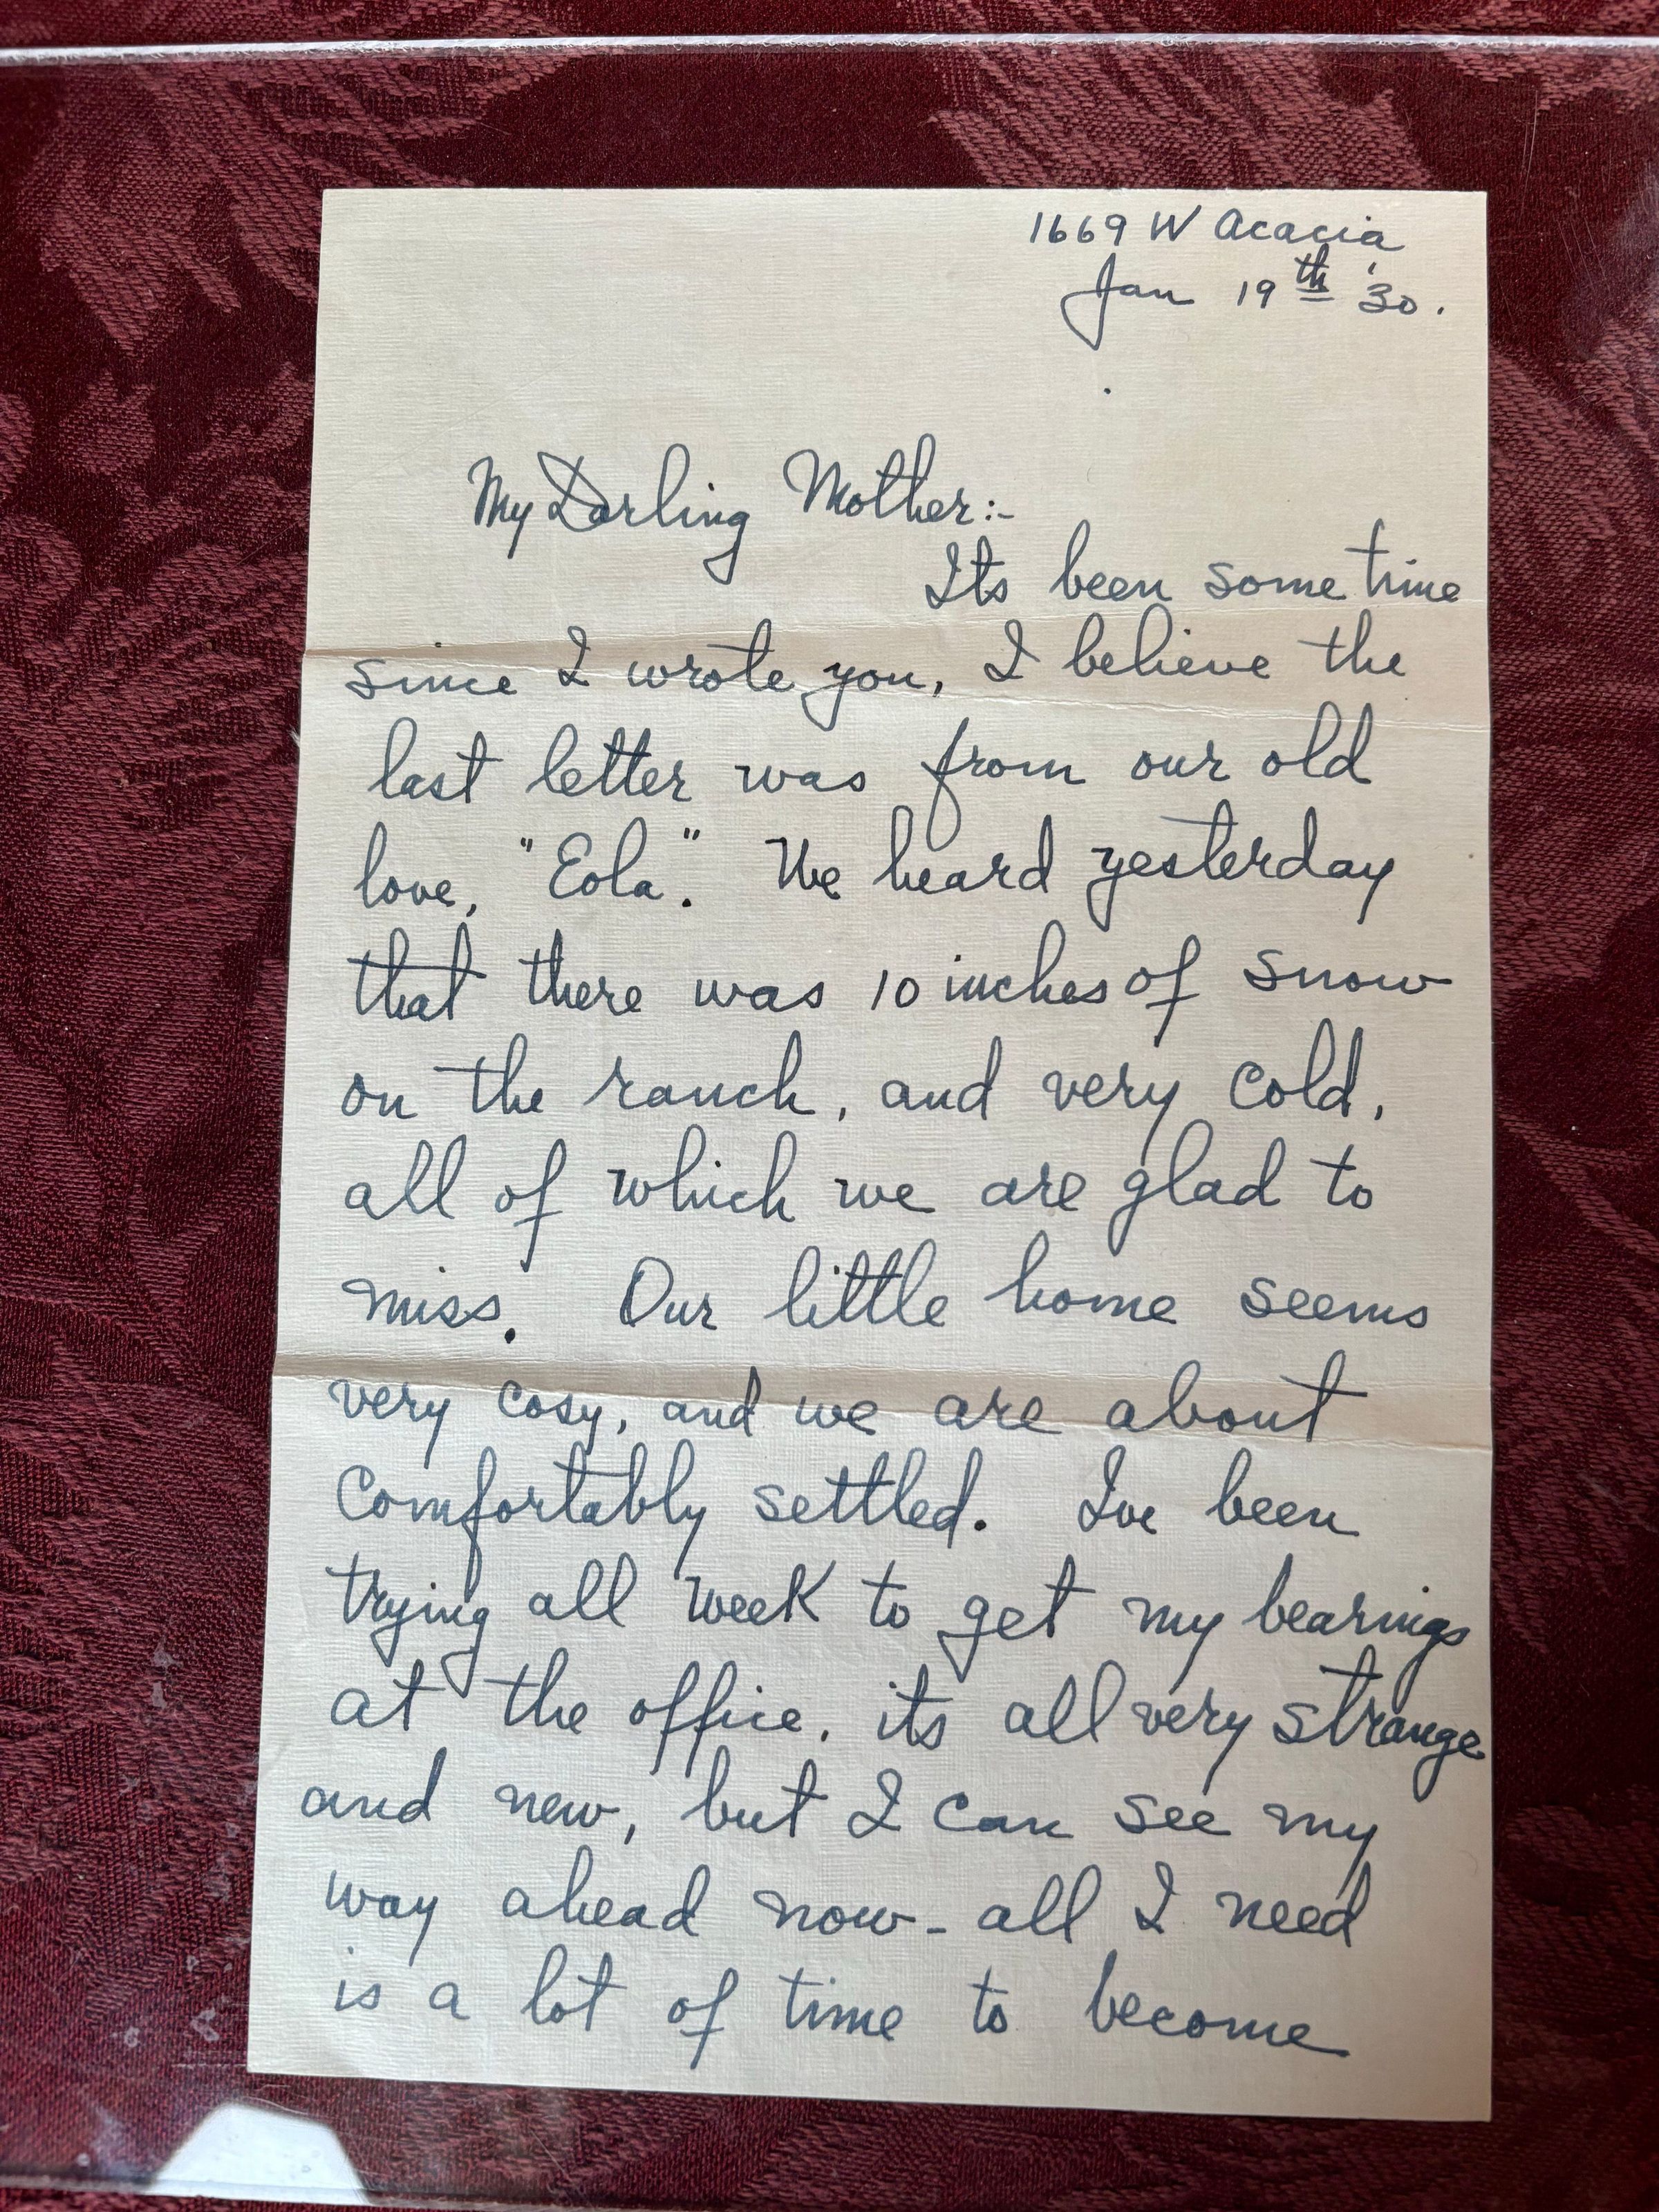 1669 W Acacia
Jan 19th '30.
My Darling Mother:-
Its been some time
since I wrote you, I believe the
last letter was from our old
love, "Eola". We heard yesterday
that there was 10 inches of snow
on the ranch, and very cold,
all of which we are glad to
miss. Our little home seems
very cosy, and we are about
comfortably settled. Ive been
trying all week to get my bearings
at the office, its all very strange
and new, but I can see my
way ahead now - all I need
is a lot of time to become